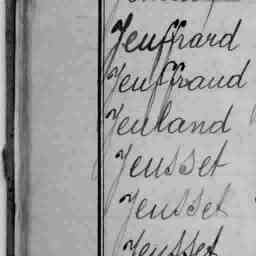 Jeuffrard
Jeuffraud
Jeuland
Jeusset
Jeusset
Jeusset